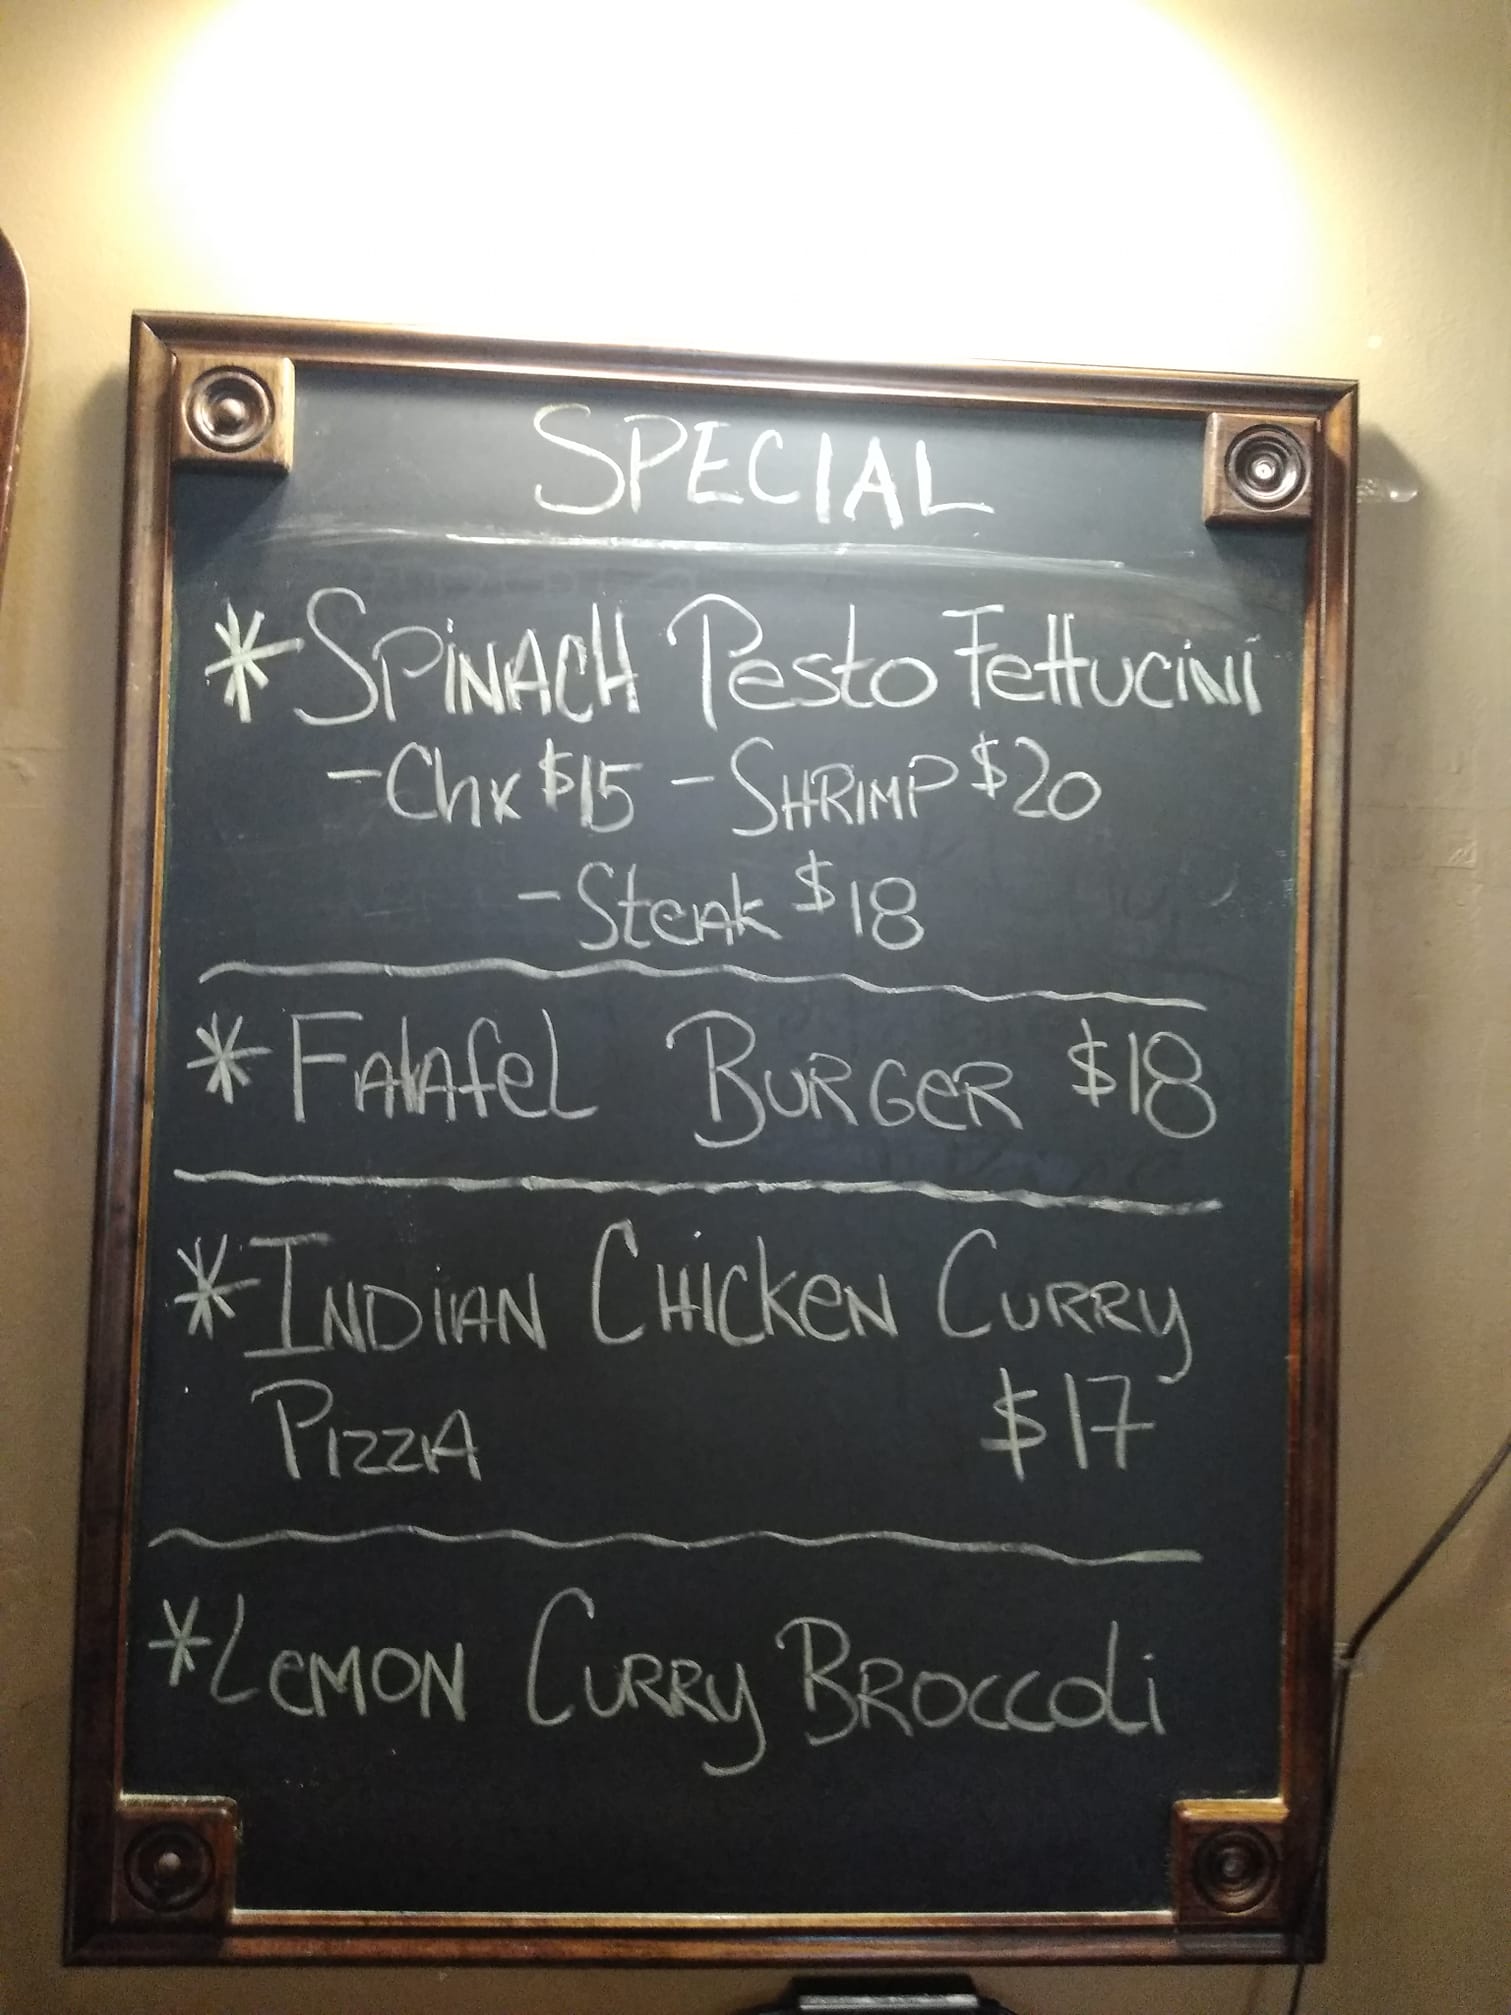 SPECIAL
* SPiNACH Pesto Fettucini
- Chx $15 - SHRIMP $20
- Steak $18
* Falafel BURGER $18
* INDiAN CHICKEN CURRY
PIZZA $17
* LEMON CURRY BROCCOLi